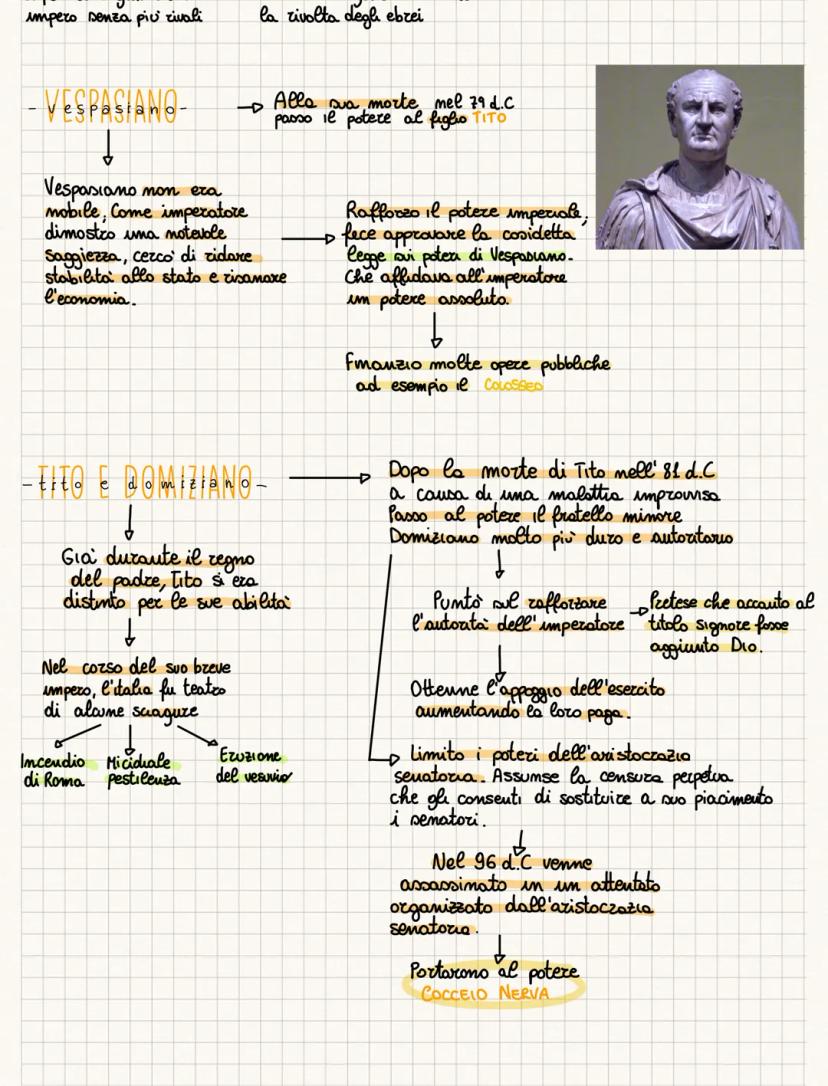 impero senza più rivali
la rivolta degli ebrei
- VESPASIANO -
vespasiano
Alla sua morte nel 79 d.C
passo il potere al figlio TITO
Vespasiano non era
nobile, Come imperatore
dimostro una notevole
saggezza, cercò di ridare
stabilità allo stato e risanare
l'economia.
Rafforzo il potere imperiale,
fece approvare la cosidetta
legge sui poteri di Vespasiano.
Che affidava all'imperatore
un potere assoluto.
Finanzio molte opere pubbliche
ad esempio il COLOSSEO
- TITO E DOMIZIANO -
tito e domiziano
Dopo la morte di Tito nell' 81 d.C
a causa di una malattia improvvisa
Passo al potere il fratello minore
Domiziano molto più duro e autoritario
Già durante il regno
del padre, Tito si era
distinto per le sue abilità
Nel corso del suo breve
impero, l'italia fu teatro
di alcune sciagure
Incendio
di Roma
Micidiale
pestilenza
Eruzione
del vesuvio
Puntò sul rafforzare
l'autorità dell'imperatore
Pretese che accanto al
titolo signore fosse
aggiunto Dio.
Ottenne l'appoggio dell'esercito
aumentando la loro paga.
Limito i poteri dell'aristocrazia
senatoria. Assumse la censura perpetua
che gli consenti di sostituire a suo piacimento
i senatori.
Nel 96 d.C venne
assassinato in un attentato
organizzato dall'aristocrazia
senatoria.
Portarono al potere
COCCEIO NERVA